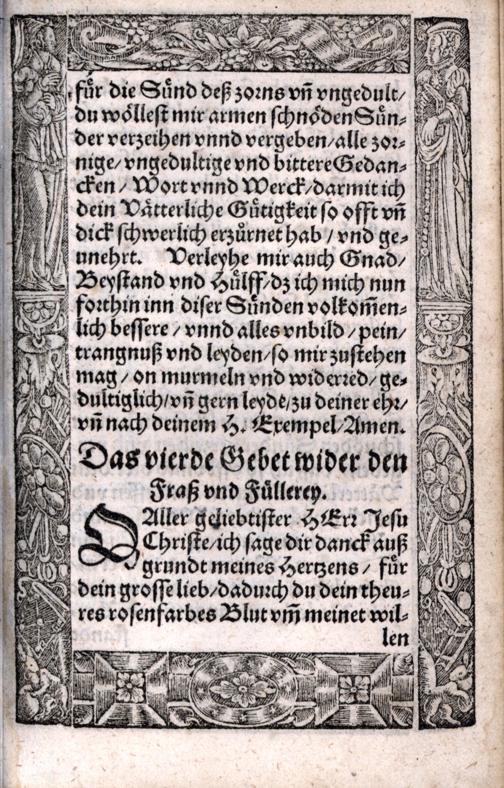 fuͤr die Suͤnd deß zorns vñ vngedult/
du woͤllest mir armen schnoͤden Suͤn⸗
der verzeihen vnnd vergeben/alle zor⸗
nige/vngedultige vnd bittere Gedan⸗
cken/Wort vnnd Werck/darmit ich
dein Vaͤtterliche Guͤtigkeit so offt vñ
dick schwerlich erzuͤrnet hab/vnd ge⸗
unehrt. Verleyhe mir auch Gnad/
Beystand vnd Huͤlff/dz ich mich nun
forthin inn diser Suͤnden volkom̃en⸗
lich bessere/vnnd alles vnbild/pein/
trangnuß vnd leyden/so mir zustehen
mag/on murmeln vnd widerred/ge⸗
dultiglich/vñ gern leyde/zu deiner ehr/
vñ nach deinem H. Exempel/Amen.
Das vierde Gebet wider den
Fraß vnd Fuͤllerey.
O Aller geliebtister HErꝛ Jesu
Christe/ich sage dir danck auß
grundt meines Hertzens/fuͤr
dein grosse lieb/dadurch du dein theu⸗
res rosenfarbes Blut vm̃ meinet wil⸗
len